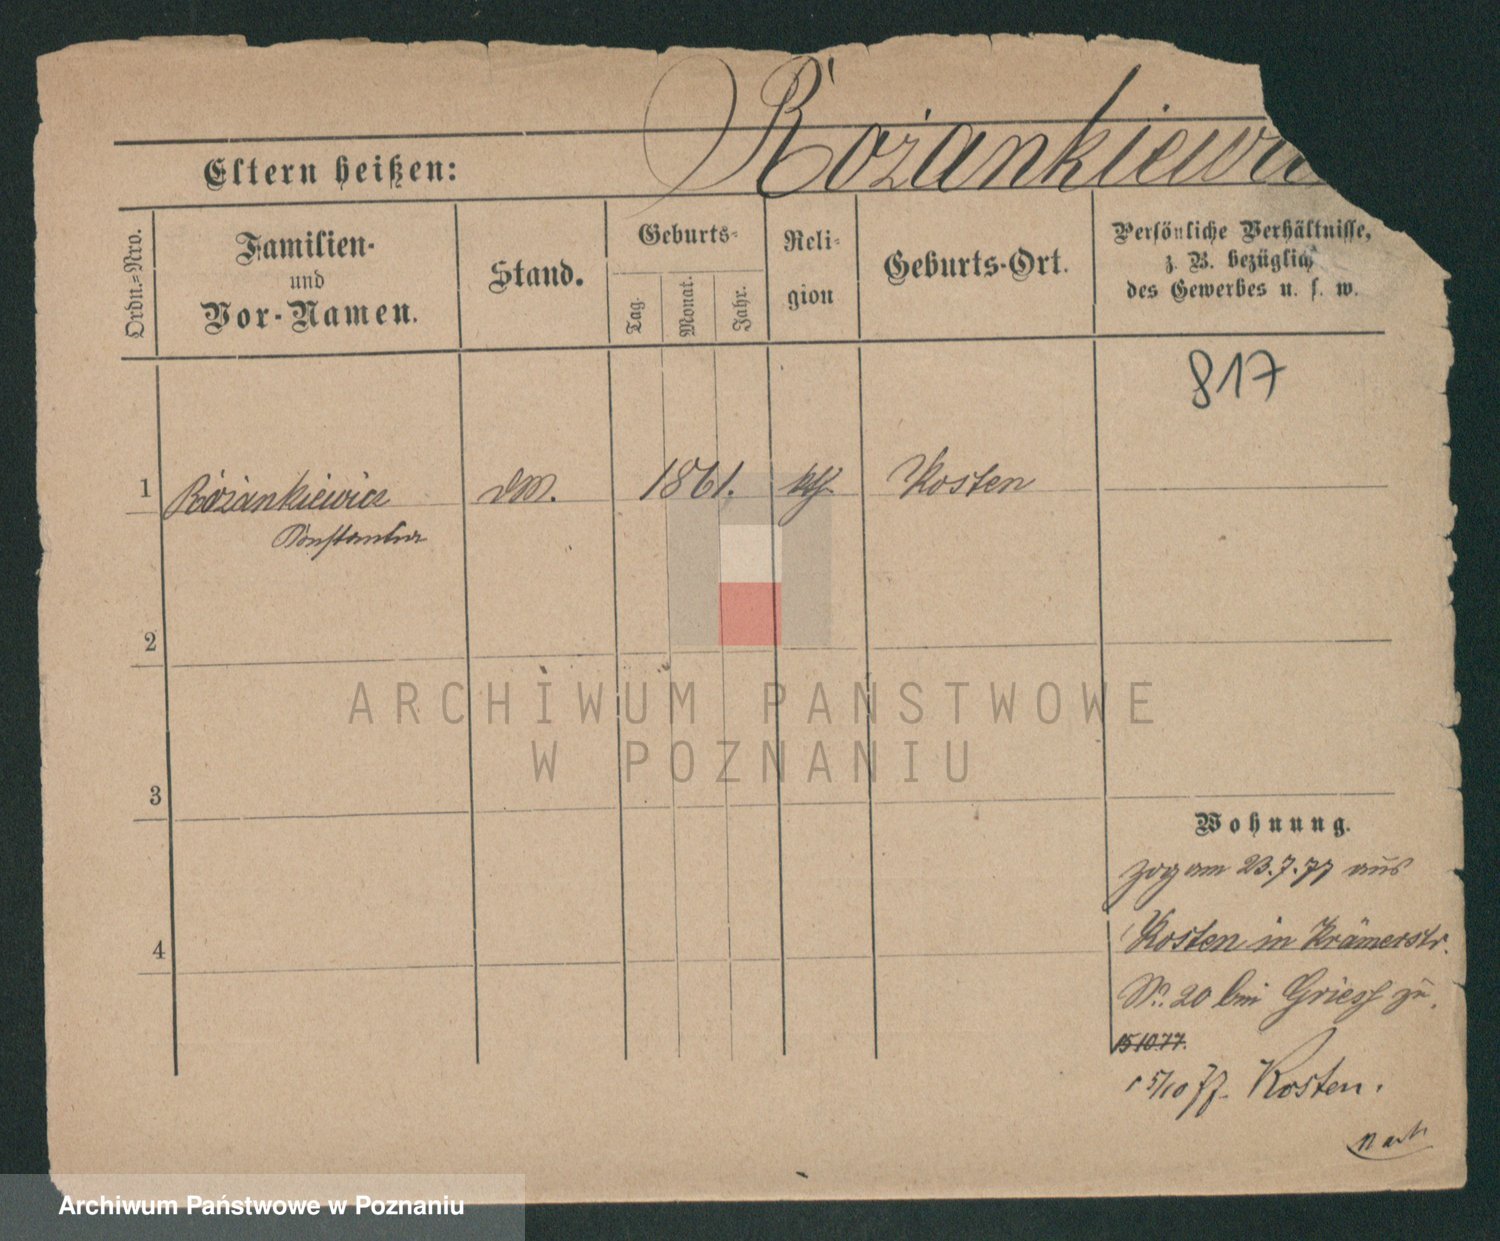 Rożankiewicz
Eltern heißen:
Ordn.=Nro.
Familien-
und
Vor-Namen.
Stand.
Geburts-
Tag.
Monat.
Jahr.
Reli-
gion
Geburts-Ort.
Persönliche Verhältnisse,
z. B. bezüglich
des Gewerbes u. s. w.
817
1
Rożankiewicz
Constantia
DM.
1861.
kth.
Kosten
2
3
4
Wohnung.
zog am 23.7.77 aus
Kosten in Krämerstr.
No. 20 bei Griess zu.
15 10 77.
15/10 77. Kosten.
ARCHIWUM PAŃSTWOWE
W POZNANIU
Archiwum Państwowe w Poznaniu